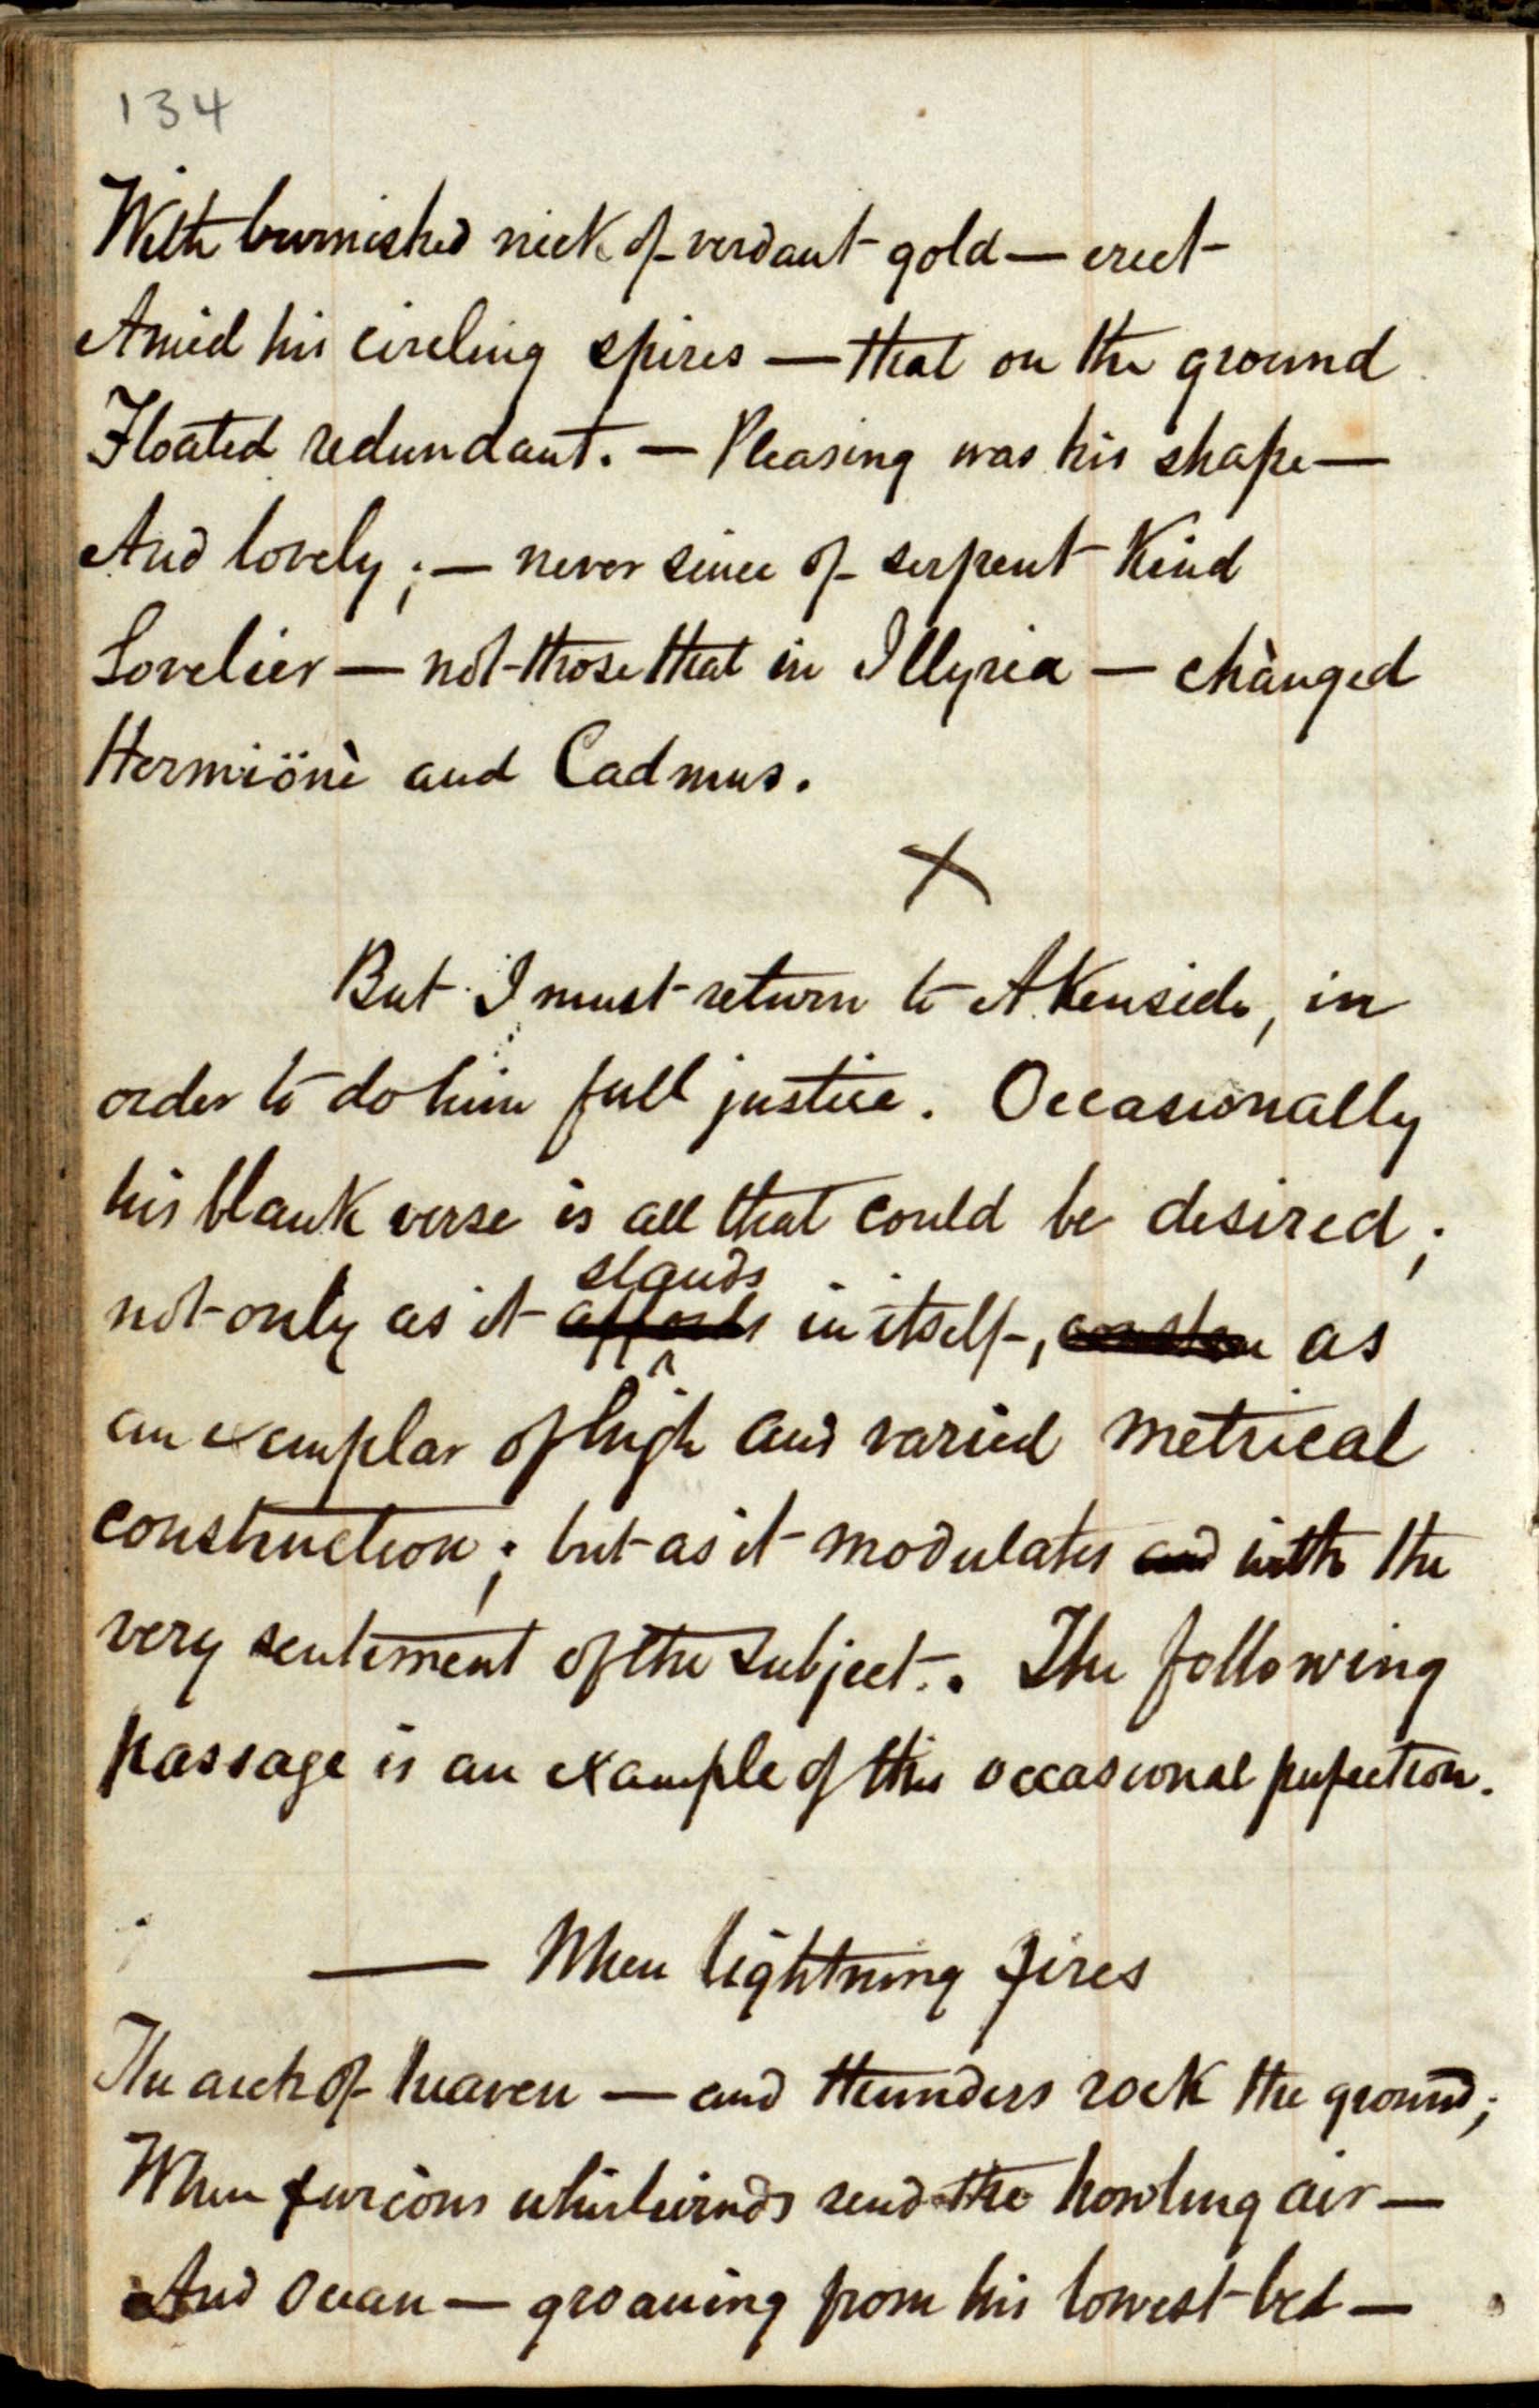 134
With burnished neck of verdant gold — erect
Amid his circling spires — that on the ground
Floated redundant. — Pleasing was his shape —
And lovely; — never since of serpent Kind
Lovelier — not those that in Illyria — chànged
Hermiönè and Cadmus.
X
But I must return to Akenside, in
order to do him full justice. Occasionally
his blank verse is all that could be desired;
stands
not only as it affords in itself, as
an exemplar of high and varied metrical
construction; but as it modulates and with the
very sentiment of the subject. The following
passage is an example of this occasional perfection.
— When lightning fires
The arch of heaven — and thunders rock the ground;
When furious whirlwinds rend the howling air —
And Ocean — groaning from his lowest bed —